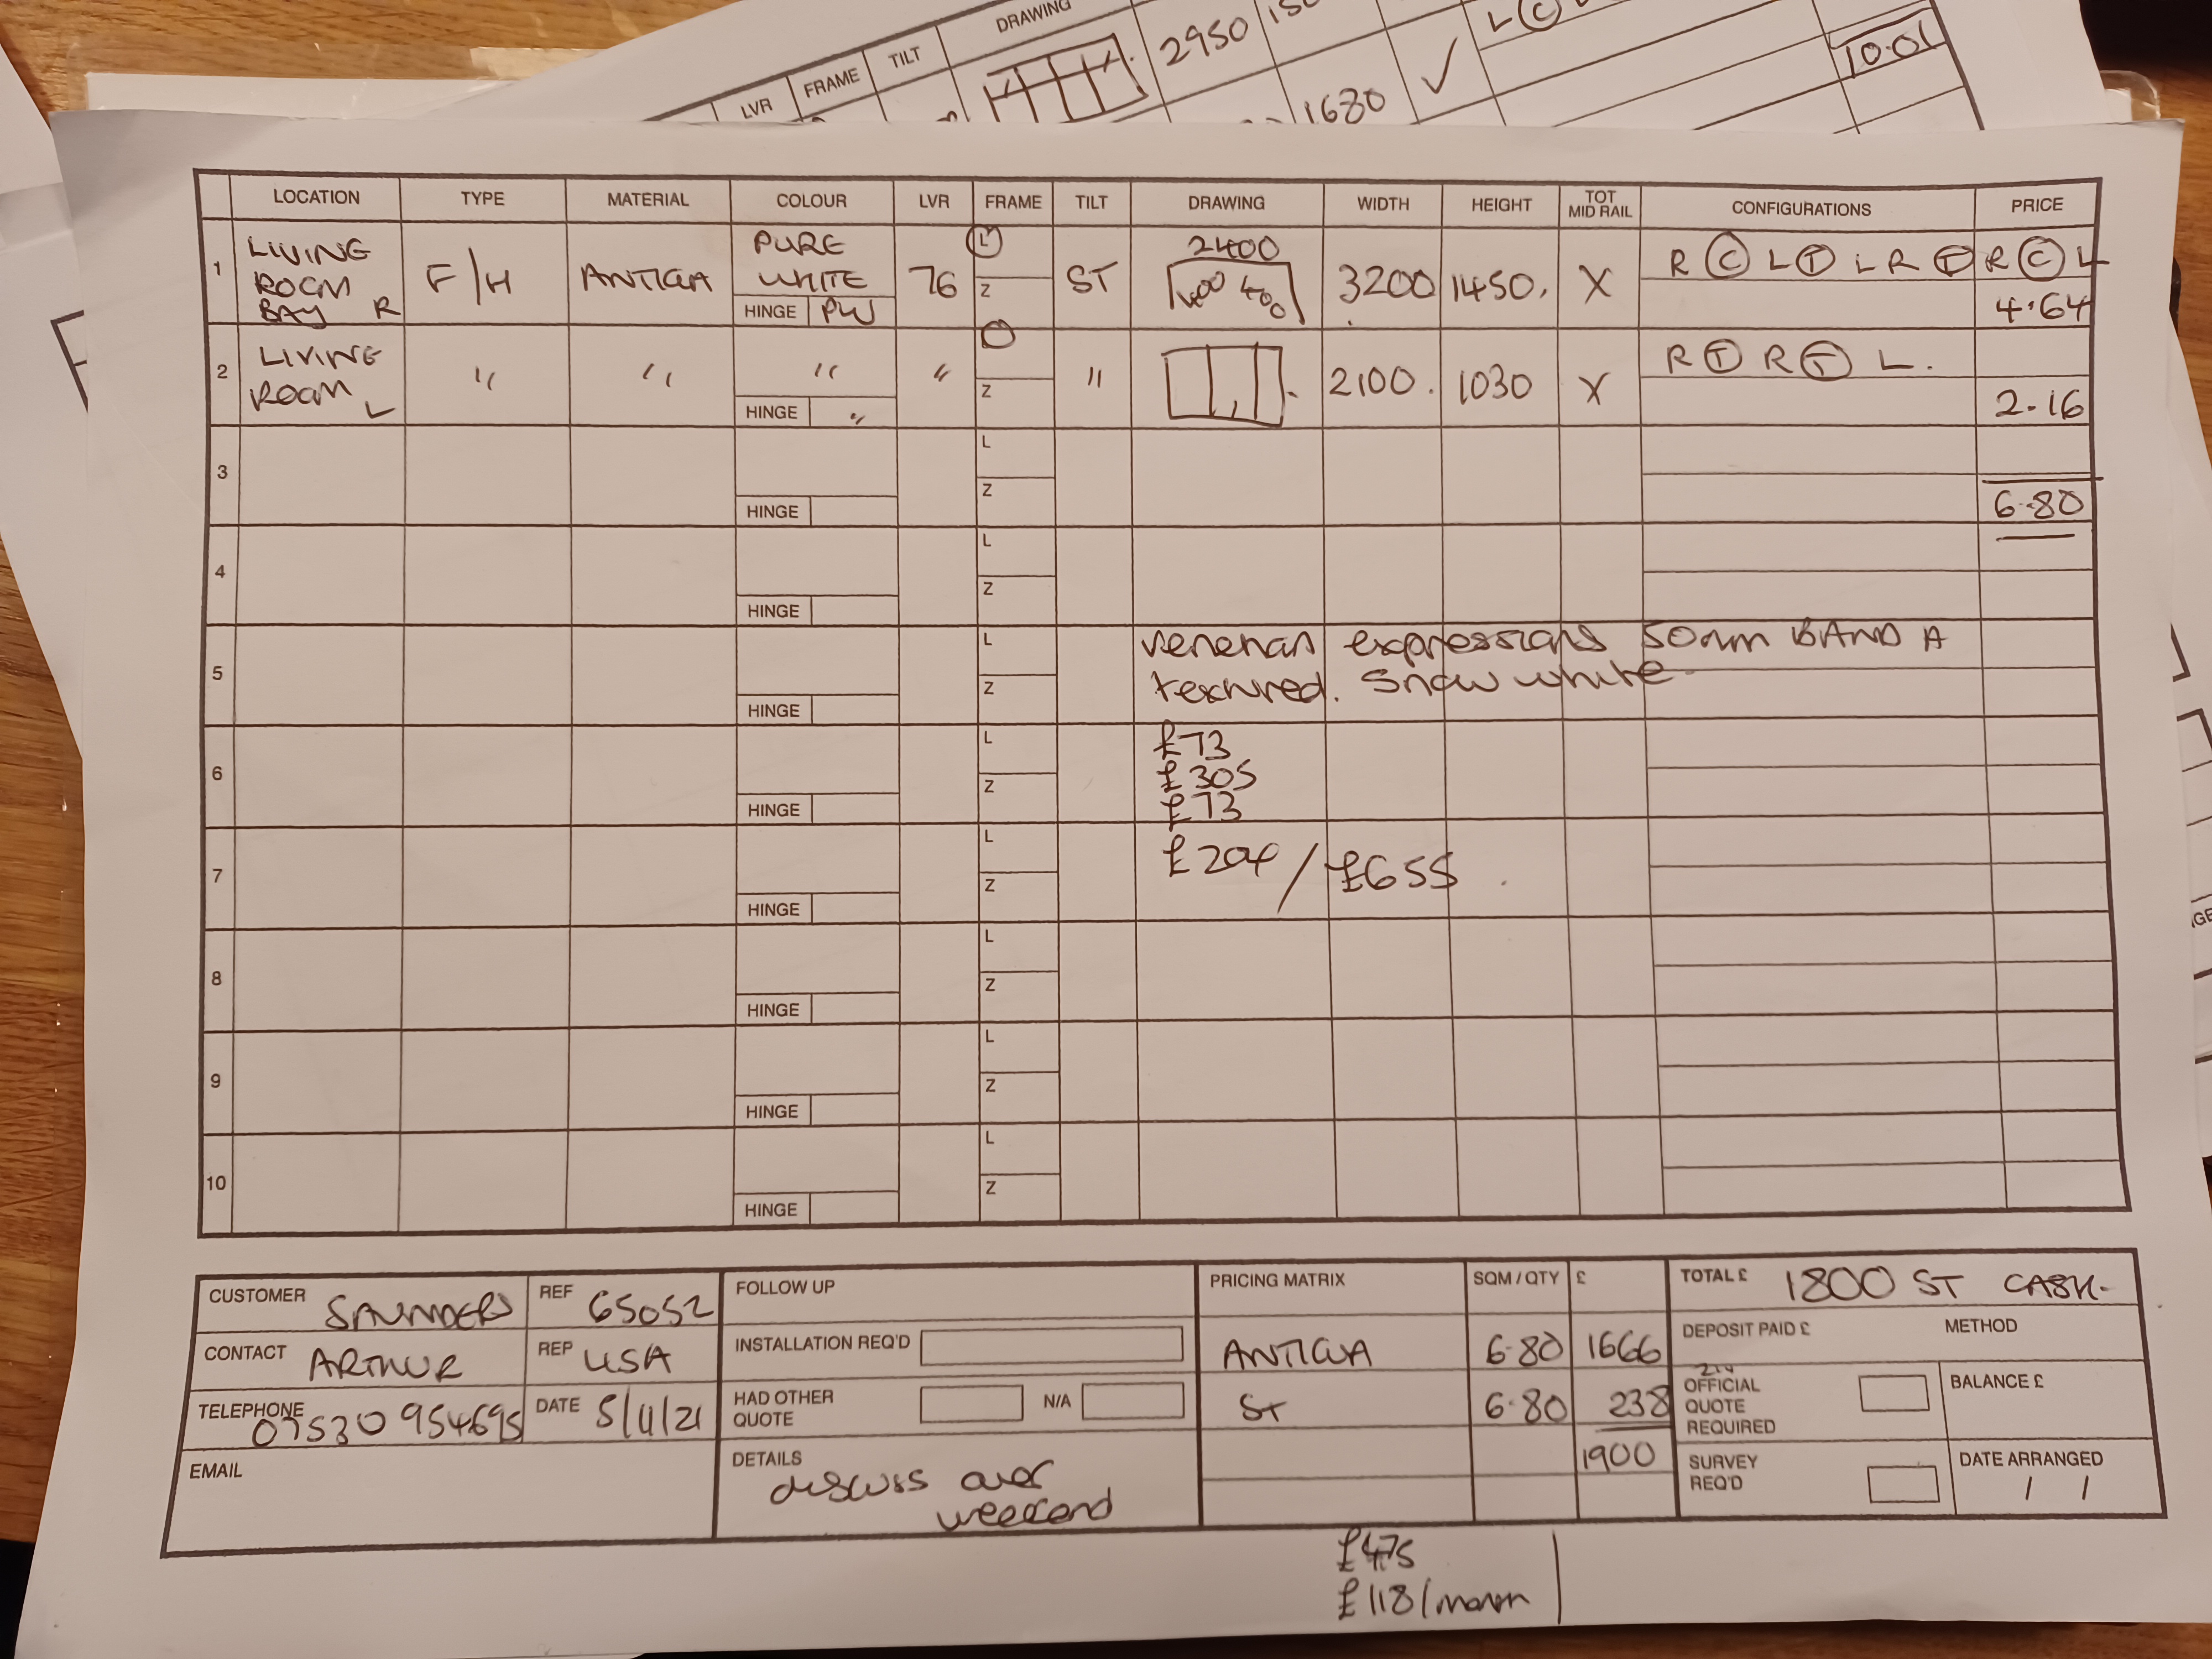 DRAWING
TILT
FRAME
LVR
2950
1680
✓
L Ⓒ
10.01
LOCATION TYPE MATERIAL COLOUR LVR FRAME TILT DRAWING WIDTH HEIGHT TOT MID RAIL CONFIGURATIONS PRICE
1 LIVING ROOM BAY R F/H ANTIGUA PURE WHITE HINGE PW 76 L Z ST 2400 400 400 3200 1450. X R Ⓒ L Ⓣ L R Ⓣ R Ⓒ L 4.64
2 LIVING ROOM L " " " HINGE " " Z " 2100. 1030 X R Ⓣ R Ⓣ L. 2.16
3 HINGE L Z 6.80
4 HINGE L Z
5 HINGE L Z venetian expressions 50mm BAND A
textured. Snow white
6 HINGE L Z £73
£305
£73
7 HINGE L Z £204 / £655
8 HINGE L Z
9 HINGE L Z
10 HINGE L Z
CUSTOMER SAUNDERS REF 65052
CONTACT ARTHUR REP LISA
TELEPHONE 07530 954695 DATE 5/11/21
EMAIL
FOLLOW UP
INSTALLATION REQ'D
HAD OTHER QUOTE N/A
DETAILS discuss over
weekend
PRICING MATRIX SQM / QTY £
ANTIGUA 6.80 1666
ST 6.80 238
1900
TOTAL £ 1800 ST CASH.
DEPOSIT PAID £ METHOD
OFFICIAL QUOTE REQUIRED BALANCE £
SURVEY REQ'D DATE ARRANGED / /
£475
£118/month